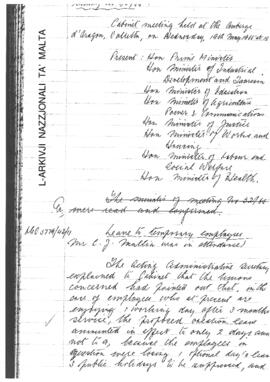 L-ARKIVJI NAZZJONALI TA MALTA
Cabinet meeting held at the Auberge
d'Aragon, Valletta, on Wednesday, 18th May 1966 at
Present: Hon Prime Minister
Hon Minister of Industrial
Development and Tourism
Hon Minister of Education
Hon Minister of Agriculture
Power & Communications
Hon Minister of Justice
Hon Minister of Works and
Housing
Hon Minister of Labour and
Social Welfare
Hon Minister of Health.
The minutes of meeting No
were read and confirmed.
Leave to temporary employees
Mr C. J. Mallia was in attendance
The Acting Administrative Secretary
explained to Cabinet that the Unions
concerned had pointed out that, in the
case of employees who at present are
enjoying 1 working day after 3 months
service, the proposed vacation leave
amounted in effect to only 2 days and
not to 2, because the employees in
question were losing 1 optional day's leave
3 public holidays to be suppressed, and